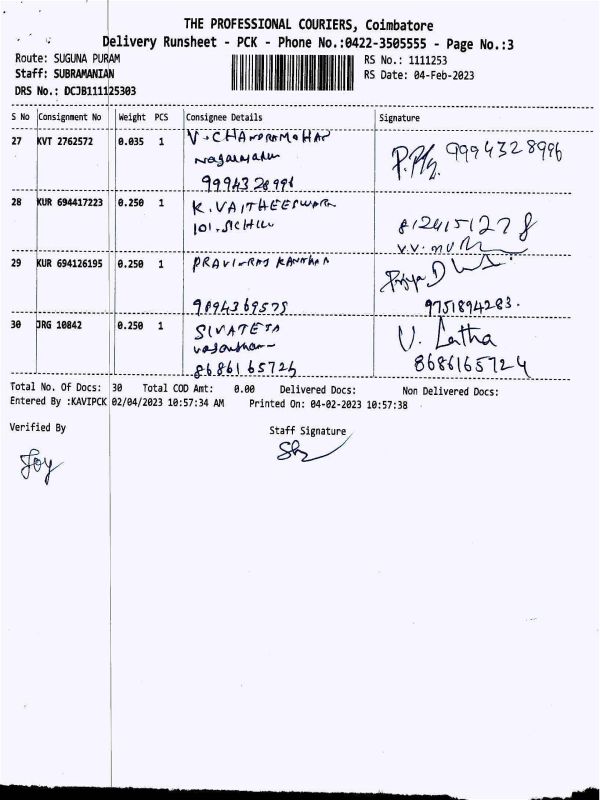 THE PROFESSIONAL COURIERS, Coimbatore
Delivery Runsheet - PCK - Phone No.:0422-3505555 - Page No.:3
Route: SUGUNA PURAM
RS No.: 1111253
Staff: SUBRAMANIAN
RS Date: 04-Feb-2023
DRS No.: DCJB111125303
S No Consignment No Weight PCS Consignee Details Signature
27 KVT 2762572 0.035 1 V. CHANDRAMOHAN
9994328996
9994328996
28 KUR 694417223 0.250 1 K. VAITHEESWARN
101.
29 KUR 694126195 0.250 1 PRAVI-RAJ KANTHAN
Priya D
9894369575 9751894283.
30 JRG 10842 0.250 1 SIVATEJA V. Latha
8686165724 8686165724
Total No. Of Docs: 30 Total COD Amt: 0.00 Delivered Docs: Non Delivered Docs:
Entered By :KAVIPCK 02/04/2023 10:57:34 AM Printed On: 04-02-2023 10:57:38
Verified By Staff Signature
Joy